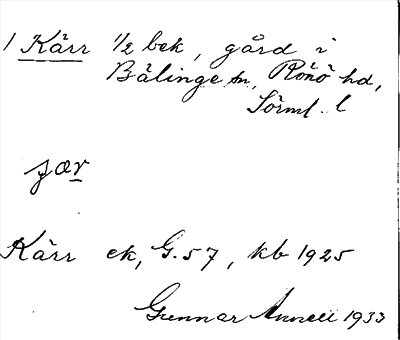 1 Kärr ½ bek, gård i
Bälinge sn, Rönö hd,
Sörml. l
Kärr ek, G.57, kb 1925
Gunnar Annell 1933